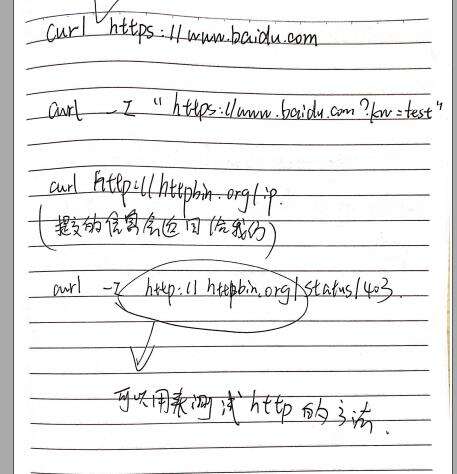 curl https://www.baidu.com
curl -I "https://www.baidu.com?kw=test"
curl http://httpbin.org/ip.
(提交的信息会返回给我们)
curl -I http://httpbin.org/status/403.
可以用来测试http的方法.